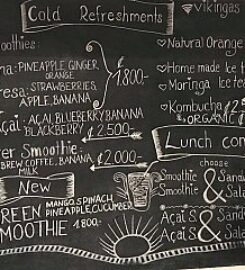 Cold Refreshments
vikingas
oothies:
Natural Orange
na: PINEAPPLE, GINGER,
ORANGE
1.800.-
resa: STRAWBERRIES,
APPLE, BANANA
Home made Ice t
Moringa Ice te
açai: AÇAI, BLUEBERRY, BANANA
BLACKBERRY ₡2.500.-
Kombucha
ORGANIC
er Smoothie:
BREW COFFEE, BANANA,
MILK
₡2.000.-
Lunch com
choose
Smoothie & Sand
Smoothie Sal
New
REEN MANGO, SPINACH,
PINEAPPLE, CUCUMBER
MOOTHIE 1800.-
Açai S & Sand
Açai S Sale